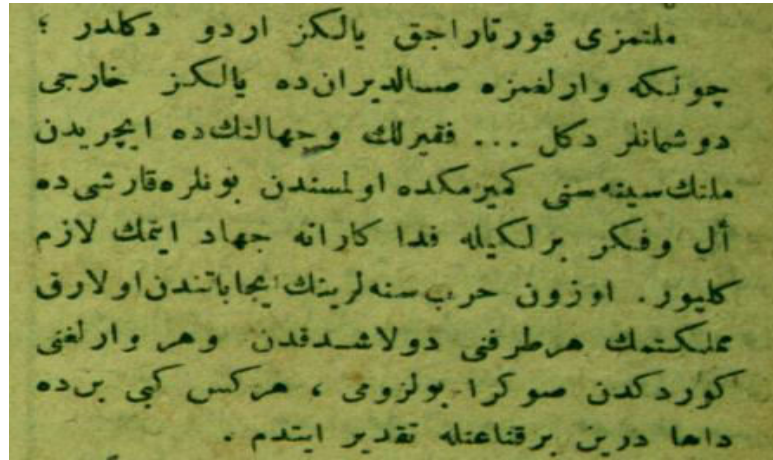 ملتمزی قورتاراجق یالکز اردو دکلدر ؛
چونکه وارلغمزه صالدیران ده یالکز خارجی
دوشمانلر دکل ... فقیرلك وجهالتك ده ایچریدن
ملتك سینه سنی کمیرمکده اولمسندن بونلره قارشی ده
أل وفکر برلکیله فدا کارانه جهاد ایتمك لازم
کلیور . اوزون حرب سنه لرینك ایجاباتندن اولارق
مملکتمك هر طرفنی دولاشدقدن وهر وارلغنی
کوردکدن صوکرا بولزومی ، هرکس کبی بن ده
داها درین بر قناعتله تقدیر ایتدم .